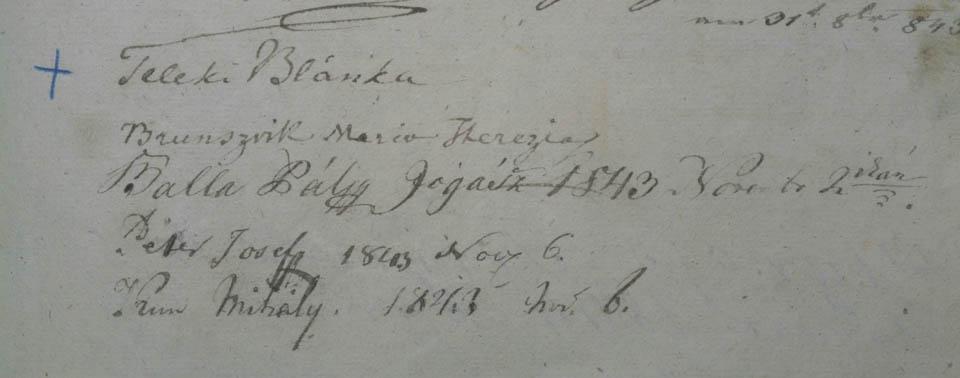 am 31t. 8br. 843
Teleki Blánka
Brunszvik Maria Therezia
Balla Pál Jogász 1843 Novembr 2ikán
Péter Josef 1843 Nov 6.
Kun Mihály. 1843 Nov. 6.